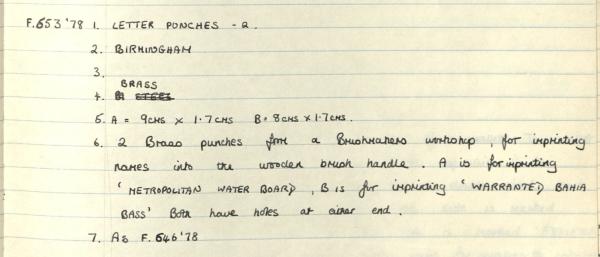 F.653'78 1. LETTER PUNCHES - 2.
2. BIRMINGHAM
3.
BRASS
4. B STEEL
5. A = 9cms x 1.7cms B = 8cms x 1.7cms.
6. 2 Brass punches from a Brushmakers workshop, for imprinting
names into the wooden brush handle. A is for imprinting
'METROPOLITAN WATER BOARD, B is for imprinting 'WARRANTED BAHIA
BASS' Both have holes at either end.
7. As F.646'78